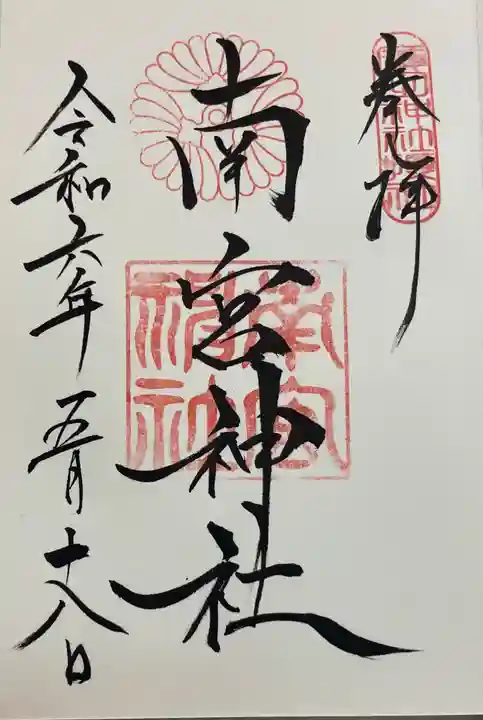 奉拝
南宮神社
南宮神社
令和六年五月十八日